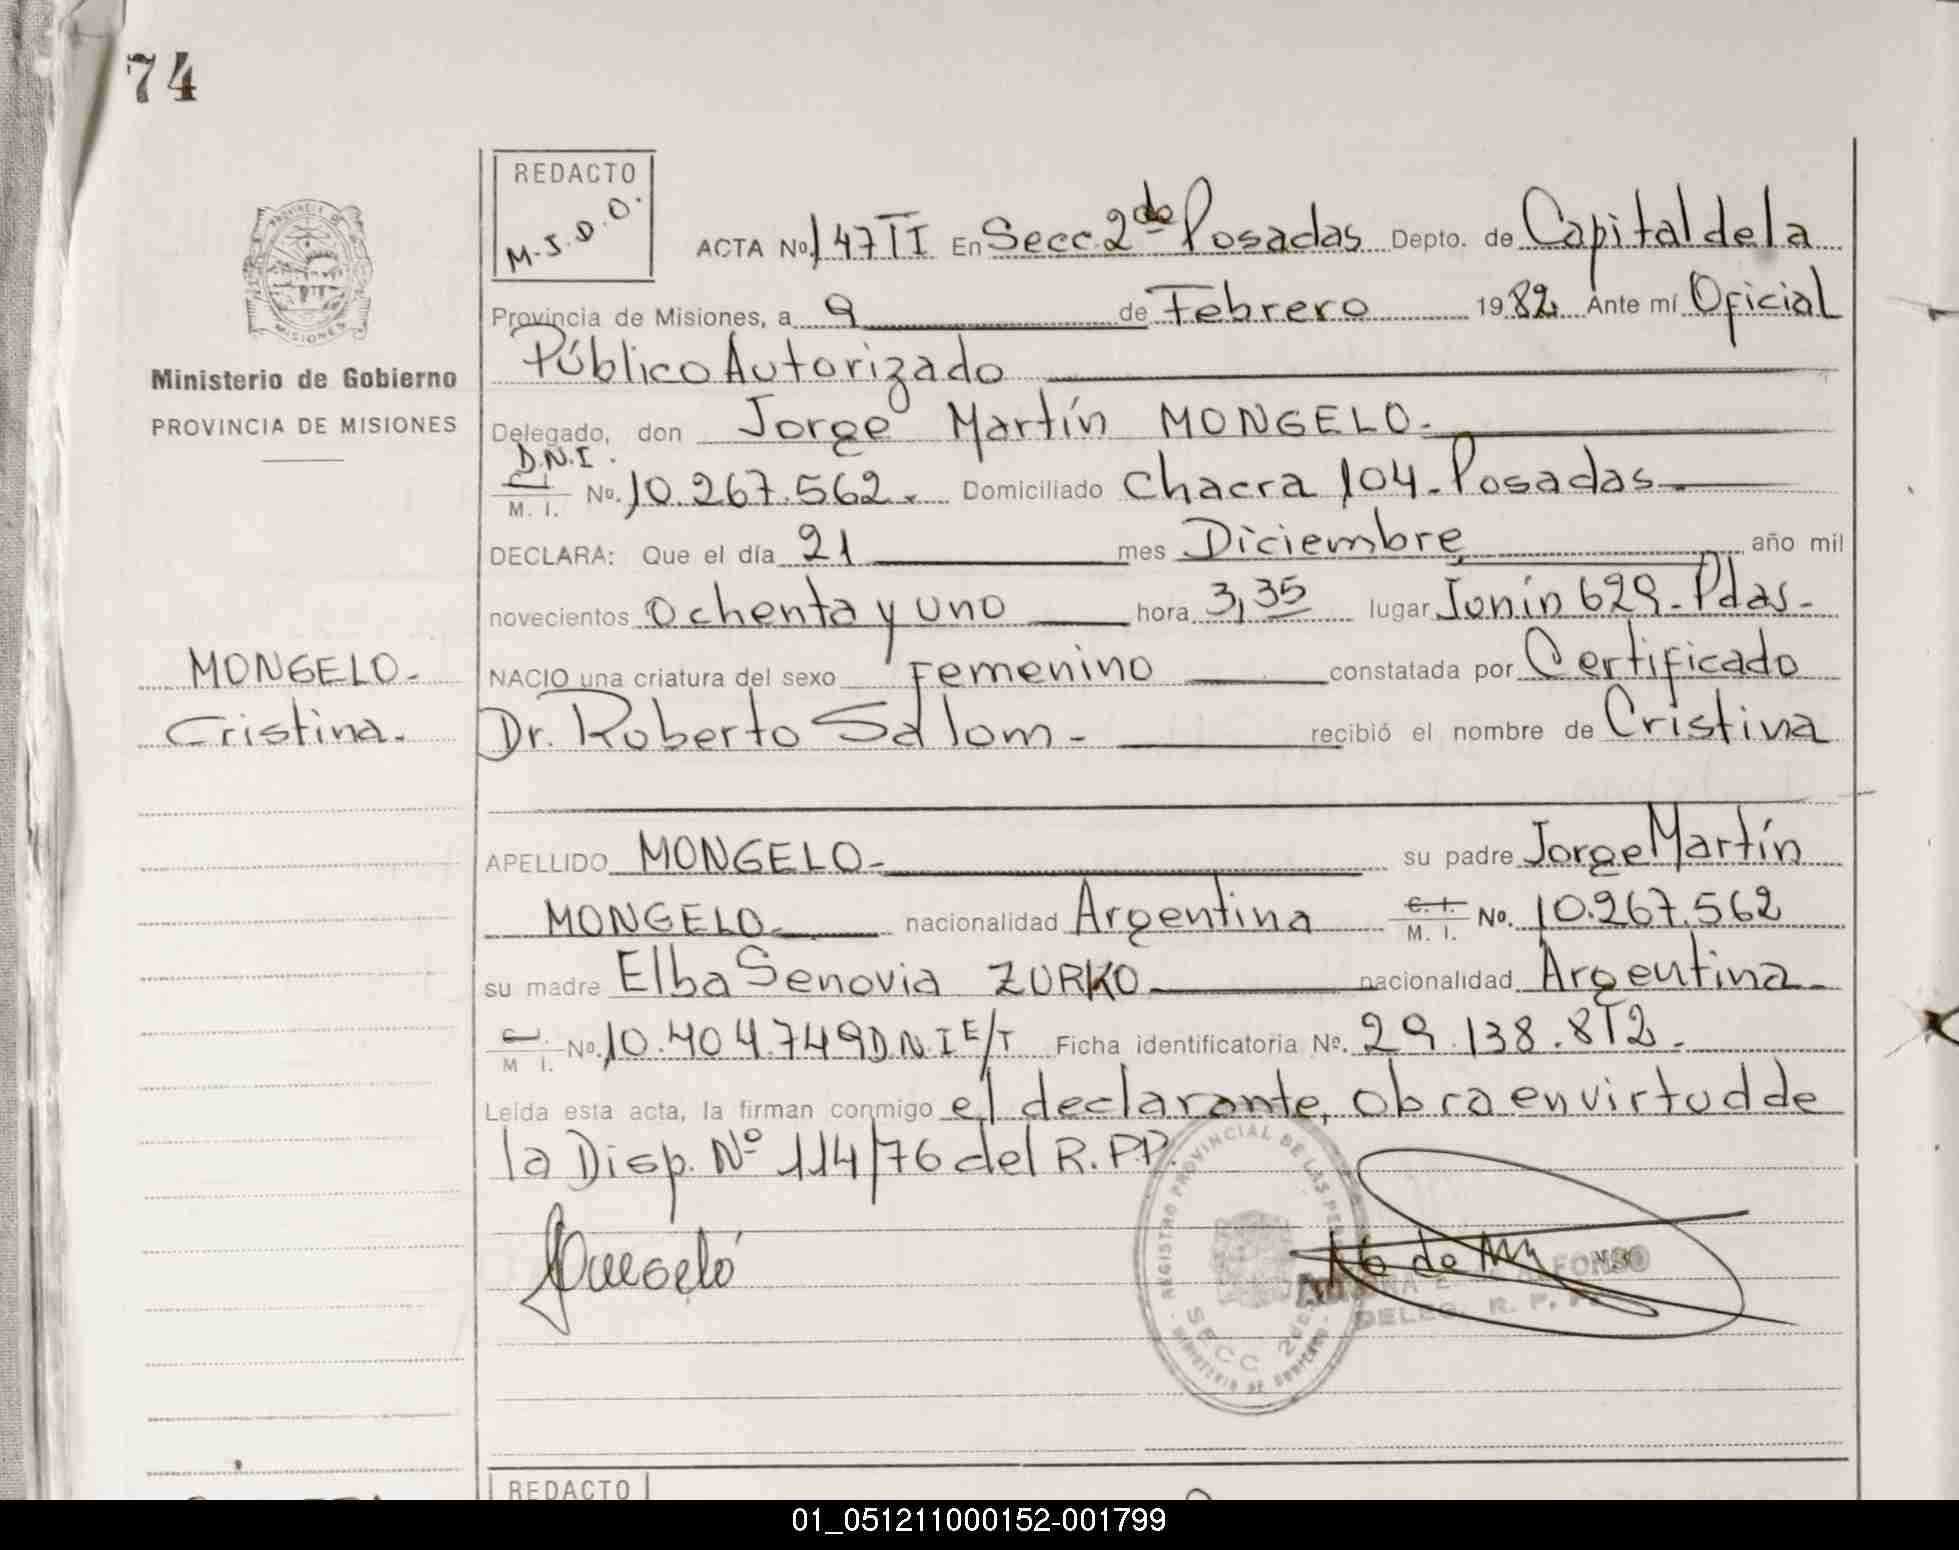 74
REDACTO
M.J.D.O.
ACTA No. 147 TI En Secc. 2da Posadas Depto. de Capital de la
Provincia de Misiones, a 9 de Febrero 1982 Ante mí Oficial
Público Autorizado
Ministerio de Gobierno
PROVINCIA DE MISIONES
Delegado, don Jorge Martín MONGELO.
D.N.I.
C. I.
M. I. No. 10.267.562. Domiciliado Chacra 104 - Posadas
DECLARA: Que el día 21 mes Diciembre año mil
novecientos ochenta y uno hora 3,35 lugar Junín 629 - Pdas -
MONGELO -
Cristina.
NACIO una criatura del sexo Femenino constatada por Certificado
Dr. Roberto Salom - recibió el nombre de Cristina
APELLIDO MONGELO - su padre Jorge Martín
MONGELO nacionalidad Argentina C. I. M. I. No. 10.267.562
su madre Elba Senovia ZURKO nacionalidad Argentina -
C. M. I. No. 10.404.749 D N I E/T Ficha identificatoria No. 29.138.812.
Leída esta acta, la firman conmigo el declarante, obra en virtud de
la Disp. Nº 114/76 del R.P.P.
REGISTRO PROVINCIAL DE LAS
SECC 2da
MINISTERIO DE GOBIERNO
ALFONSO
DELEG. R. P. P.
REDACTO
01_051211000152-001799